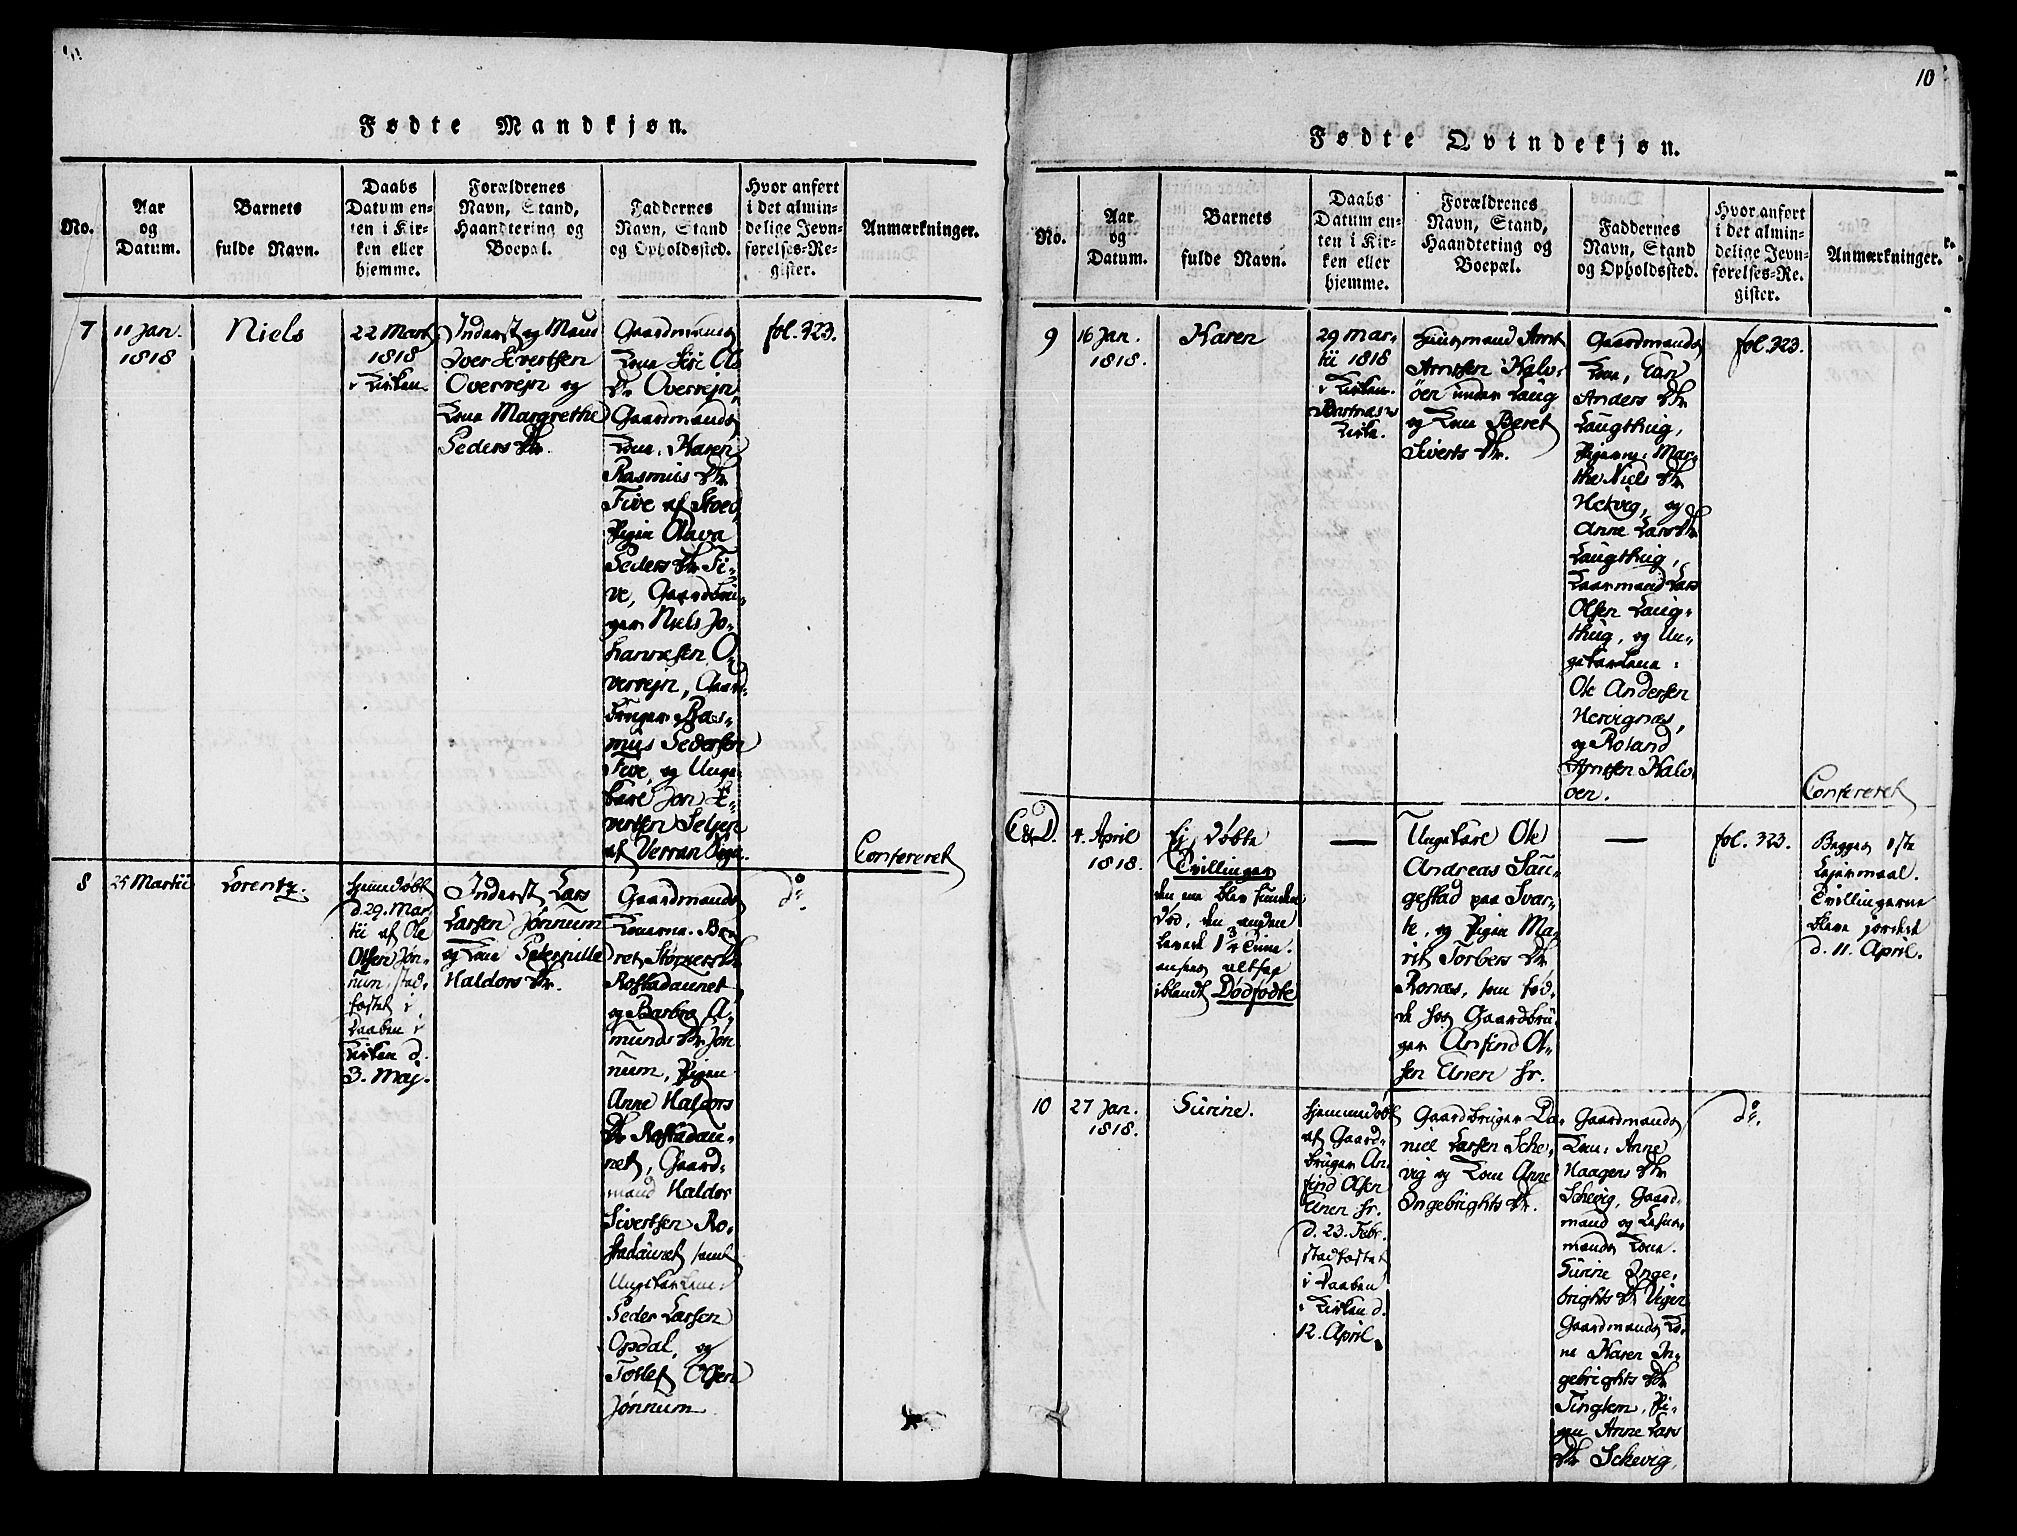 Fødte Mandkjøn.
No.
Aar
og
Datum.
Barnets
fulde Navn.
Daabs
Datum en-
ten i Kir-
ken eller
hjemme.
Forældrenes
Navn, Stand,
Haandtering og
Boepæl.
Faddernes
Navn, Stand
og Opholdssted.
Hvor anført
i det almin-
delige Jevn-
førelses-Re-
gister.
Anmærkninger.
7
11 Jan.
1818
Niels
22 Mart
1818
i Kirken
Inderst og
Iver Sivertsen
Overrejn og
Kone Margrethe
Peders Dtr.
Gaardmands
Kone Siri Ols
Dtr Overrejn,
Gaardmands
Kone, Karen
Rasmus Dtr
Five af Stoed,
Pigen Olava
Peders Dtr Fi-
ve, Gaardbru-
ger Niels Jo-
hannesen O-
verrejn, Gaard-
bruger Ras-
mus Pedersen
Five, og Unge-
karl Jon E-
vertsen Seljen
af Verran Sogn.
fol. 323.
Confereret
8
25 Martii
Lorentz.
hjemmedøbt
d. 29. Mar-
tii af Ole
Olsen Jøn-
num, stad-
fæstet i
Daaben i
Kirken d.
3. Maj.
Inderst Lars
Larsen Jønnum
og Kone Peternille
Haldors Dtr.
Gaardmands
Konerne. Be-
ret Størkers Dtr
Rostadaunet
og Barbro A-
munds Dtr Jøn-
num, Pigen
Anne Haldors
Dtr Rostadau-
net, Gaard-
mand Haldor
Sivertsen Ro-
stadaunet samt
Ungekarlene:
Peder Larsen
Opdal, og
Tollef Olsen
Jønnum
do.
10
Fødte Qvindekjøn.
No.
Aar
og
Datum.
Barnets
fulde Navn.
Daabs
Datum en-
ten i Kir-
ken eller
hjemme.
Forældrenes
Navn, Stand,
Haandtering og
Boepæl.
Faddernes
Navn, Stand
og Opholdssted.
Hvor anført
i det almin-
delige Jevn-
førelses-Re-
gister.
Anmærkninger.
9
16 Jan.
1818.
Karen
29 Mar-
tii 1818
i Kirken.
Kirke.
Huusmand Arnt
Arntsen Kalv-
øen under Laug
og Kone Beret
Siverts Dtr.
Gaardmands
Kone,
Anders Dtr
Laugthug,
Pigerne: Mar-
the Niels Dtr
og
Anne Lars Dtr
Laugthug,
Gaardmand Lars
Olsen Laug-
thug, og Un-
gekarlene:
Ole Andersen
Hervignæs,
og Roland
Arntsen Kalv-
øen.
fol. 323.
Confereret
4. April
1818.
Ej døbte
Tvillinger
den ene blev funden
død, den anden
levede 1/4 Time.
ansees altsaa
iblandt Dødfødte
—
Ungekarl Ole
Andreas Sau-
gestad paa Svar-
te, og Pigen Ma-
rit Torbers Dtr
Rones, som fød-
de hos Gaardbru-
ger Anfind Ol-
sen Enen hr.
—
fol. 323.
Begges 1ste
Lejermaal.
Tvillingerne
bleve jordet
d. 11. April.
10
27 Jan.
1818.
Surine.
hjemmedøbt
af Gaard-
bruger An-
find Olsen
Enen hr.
d. 23. Febr.
stadfæstet
i Daaben
i Kirken d.
12. April.
Gaardbruger Da-
niel Larsen Sche-
vig og Kone Anne
Ingebrights Dtr.
Gaardmands
Kone: Anne
Haagens Dtr
Schevig, Gaard-
mand og
mands Kone.
Surine Inge-
brights Dtr
Gaardmands Ko-
ne Karen In-
gebrights Dtr
Tinglem, Pi-
gen Anne Lars
Dtr Schevig.
do.